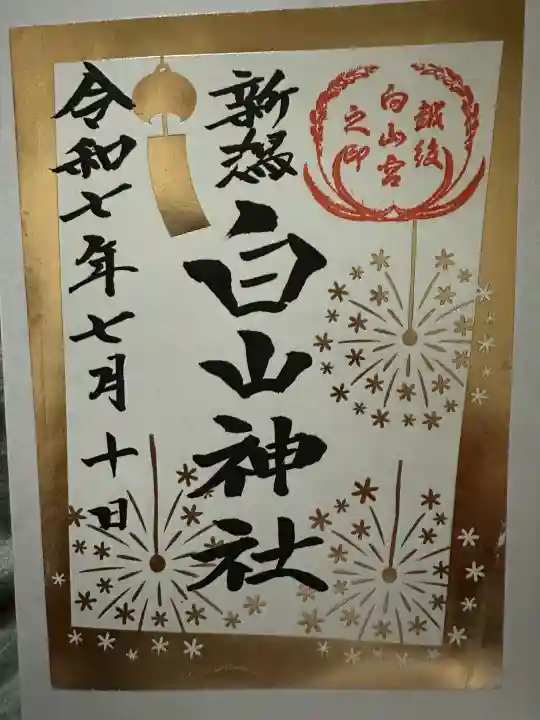 越後
白山宮
之印
新潟
白山神社
令和七年七月十日